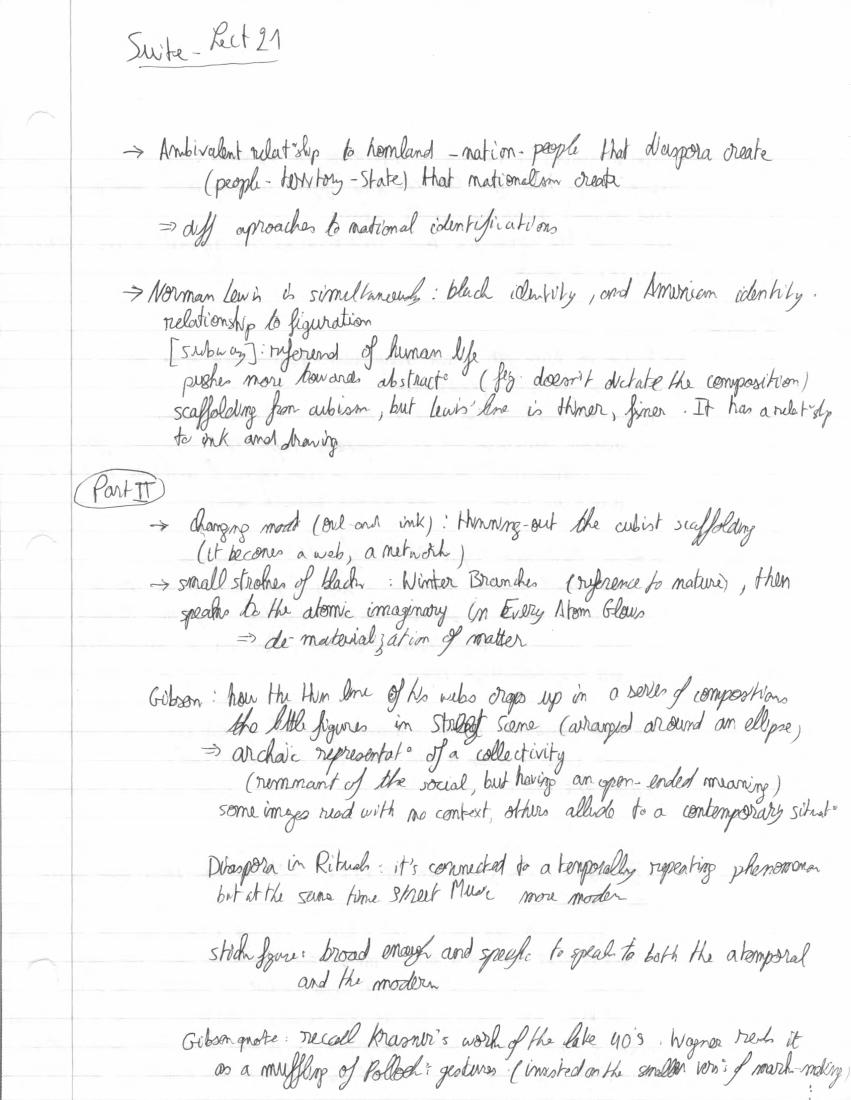 Suite - Lect 21
→ Ambivalent relat°ship to homland - nation - people that diaspora create
(people - territory - State) that nationalism create
⇒ diff aproaches to national identifications
→ Norman Lewis is simultaneously : black identity, and American identity.
relationship to figuration
[subway] : referend of human life
pushes more towards abstract° (fig doesn't dictate the composition)
scaffolding from cubism, but lewis' line is thinner, finer. It has a relat°ship
to ink and drawing
Part II
→ changing mood (oil and ink) : thinning-out the cubist scaffolding
(it becomes a web, a network)
→ small strokes of black : Winter Branches (reference to nature), then
speaks to the atomic imaginary in Every Atom Glows
⇒ de-materialization of matter
Gibson : how the thin line of his webs crops up in a series of compositions
the little figures in Street Scene (arranged around an ellipse)
⇒ archaic representat° of a collectivity
(remnant of the social, but having an open-ended meaning)
some images read with no context, others allude to a contemporary situat°
Diaspora in Rituals : it's connected to a temporally repeating phenomenon
but at the same time Street Music more modern
stick figure : broad enough and specific to speak to both the atemporal
and the modern
Gibson quote : recall Krasner's work of the late 40's. Wagner reads it
as a muffling of Pollock's gestures (insisted on the smaller vers° of mark-making)